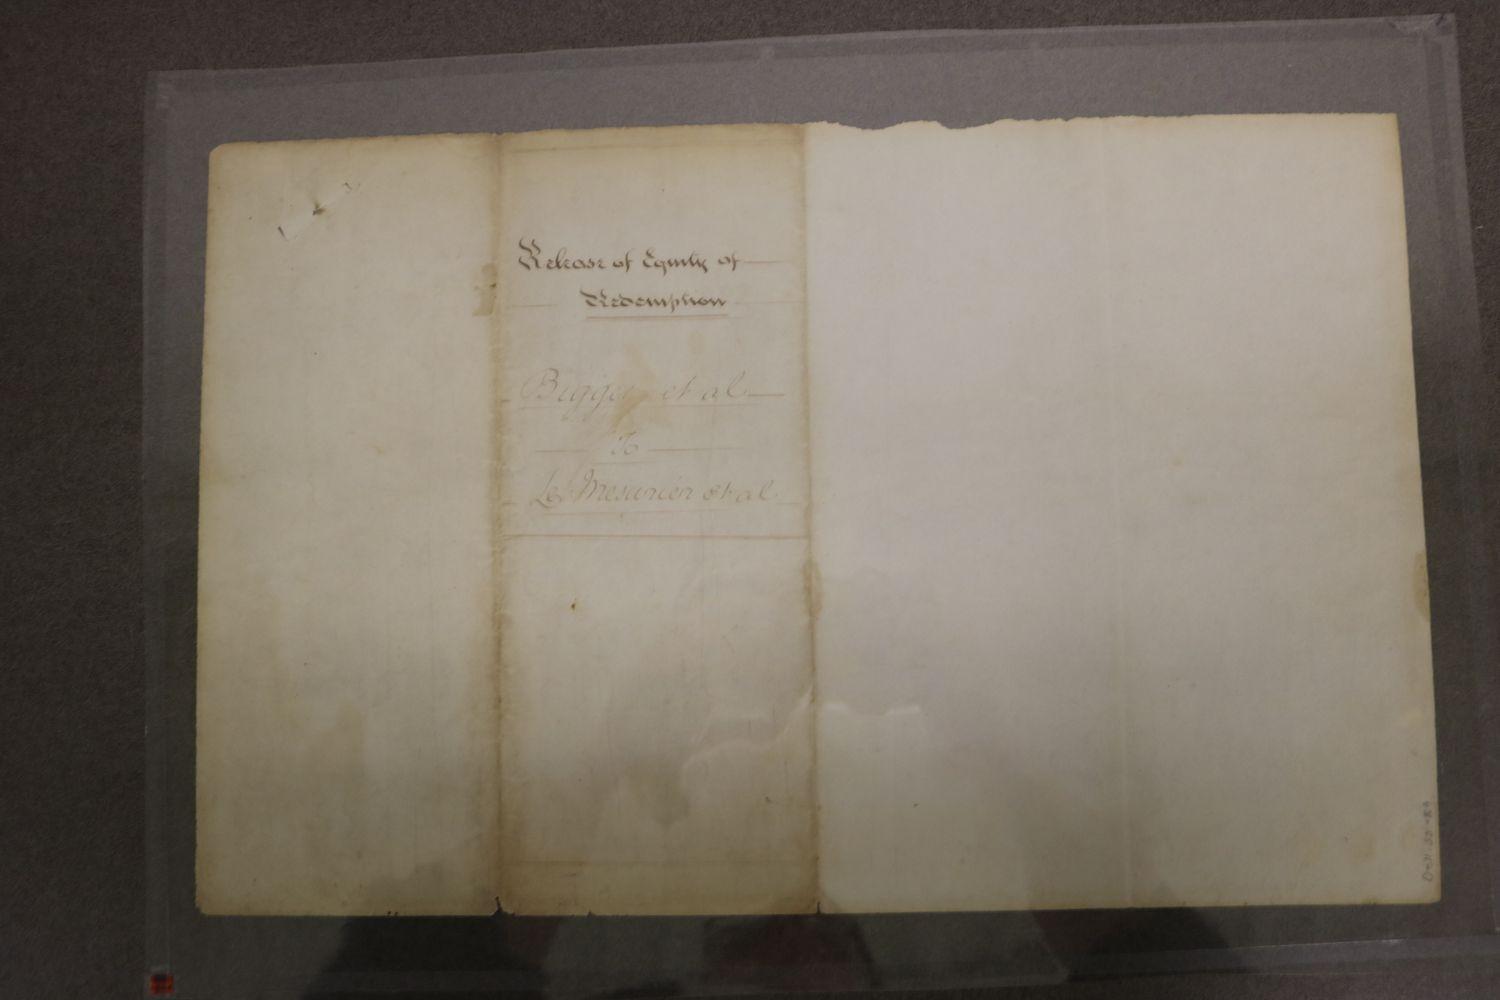 Release of Equity of
Redemption
et al
To
Le Mesurier et al